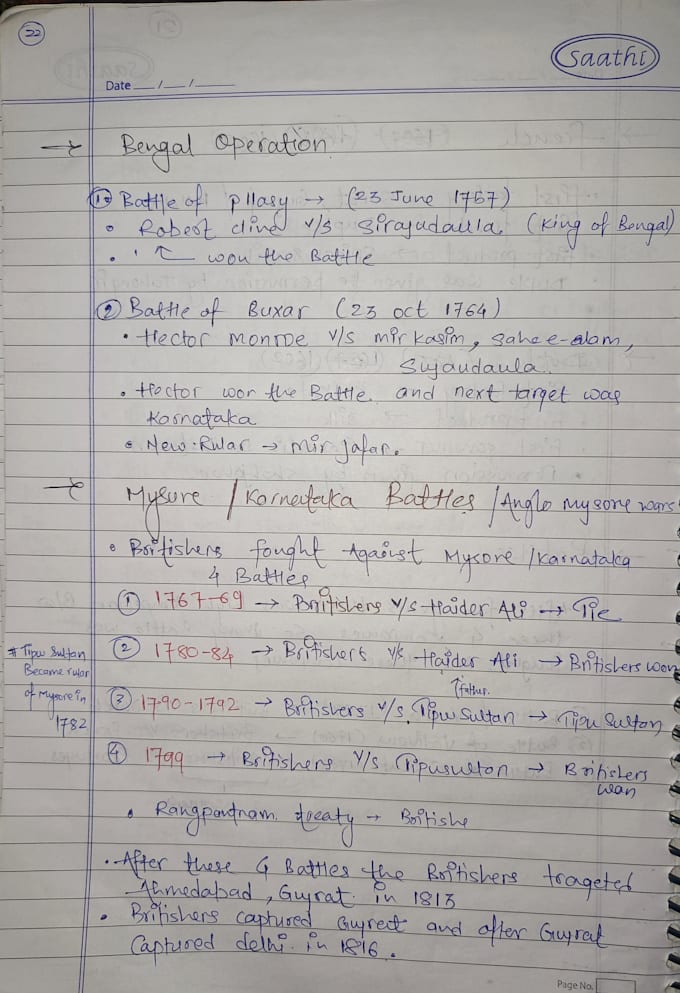 22
Saathi
Date __/__/____
→ Bengal Operation
① Battle of Pllasy → (23 June 1757)
• Robert clive v/s Sirajudaulla. (King of Bengal)
• ' ↑ won the Battle
② Battle of Buxar (23 oct 1764)
• Hector monroe v/s mir kasim, sahee-alam,
Sujaudaula.
• Hector won the Battle. and next target was
Karnataka
• New Rular → mir jafar.
→ Mysure / Karnataka Battles / Anglo mysore wars
• Britishers fought Against Mysore / Karnataka
4 Battles
① 1767-69 → Britishers v/s Haider Ali → Tie
② 1780-84 → Britishers v/s Haider Ali → Britishers won
# Tipu Sultan
Became rular
of Mysore in
1782
↑ father.
③ 1790-1792 → Britishers v/s Tipu Sultan → Tipu Sultan
④ 1799 → Britishers v/s Tipusulton → Britishers
wan
• Rangpantnam. treaty → Britishe
• After these 4 Battles the Britishers trageted
Ahmedabad, Gujrat in 1813
• Britishers captured Gujrect and after Gujrat
Captured delhi. in 1816.
Page No.